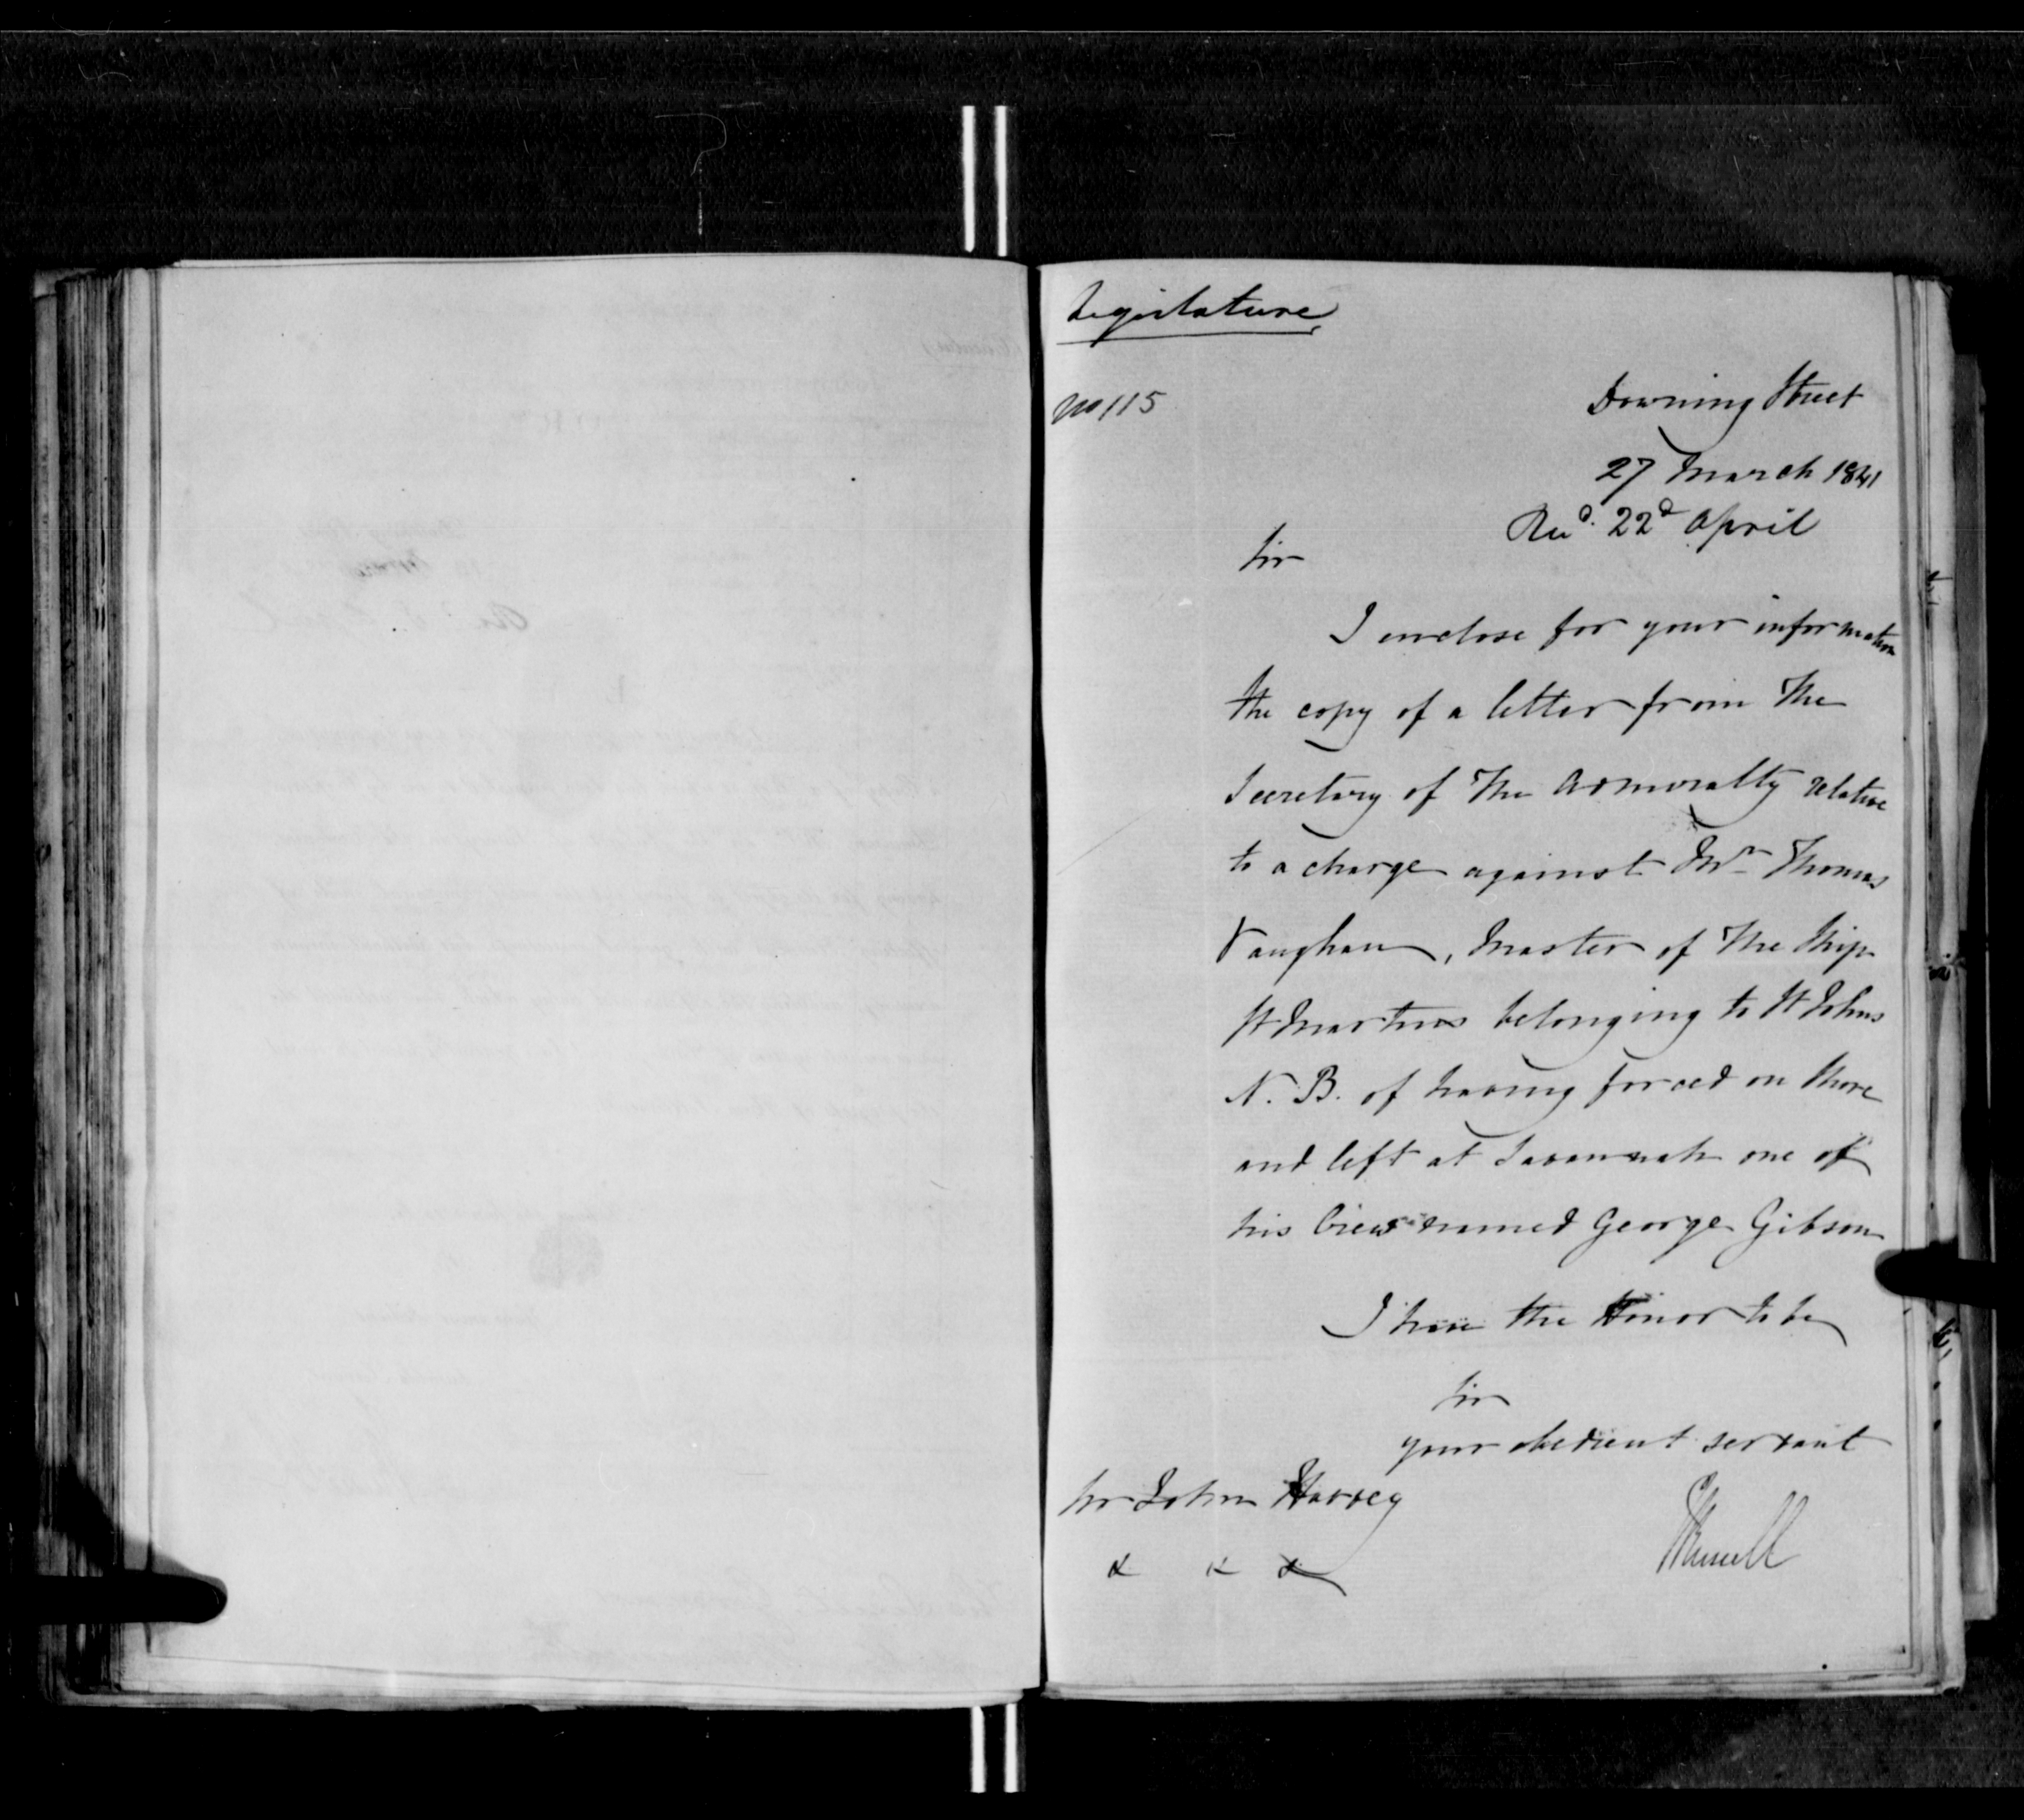 Legislature
No 115
Downing Street
27 March 1841
Recd. 22d April
Sir
I enclose for your information
the copy of a letter from the
Secretary of the Admiralty relative
to a charge against Mr Thomas
Vaughan, Master of the Ship
St Martins belonging to St Johns
N. B. of having forced on shore
and left at Savannah one of
his Crew named George Gibson
I have the Honor to be
Sir
your obedient servant
Sir John Harvey
JRussell
& & &